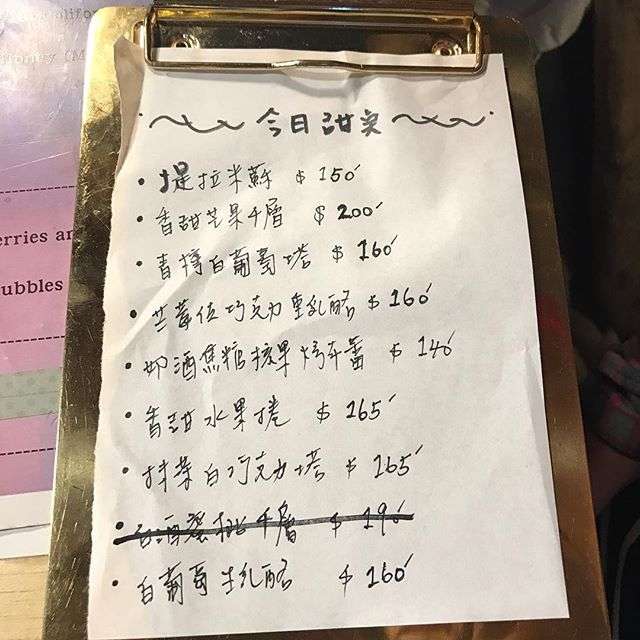 alifo
oney (M
erries an
ubbles
今日甜点
提拉米蘇 $150
香甜芒果千層 $200
青檸白葡萄塔 $160
巧克力重乳酪 $160
奶酒焦糖核果烤布蕾 $140
香甜水果捲 $165
抹茶白巧克力塔 $165
千層 $190
白葡萄生乳酪 $160